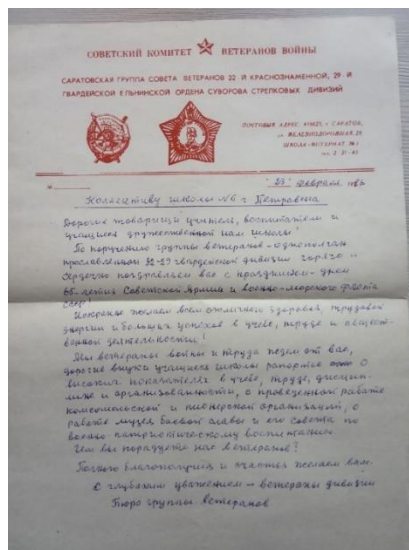 СОВЕТСКИЙ КОМИТЕТ ВЕТЕРАНОВ ВОЙНЫ
САРАТОВСКАЯ ГРУППА СОВЕТА ВЕТЕРАНОВ 32-Й КРАСНОЗНАМЕННОЙ, 29-Й
ГВАРДЕЙСКОЙ ЕЛЬНИНСКОЙ ОРДЕНА СУВОРОВА СТРЕЛКОВЫХ ДИВИЗИЙ
ПОЧТОВЫЙ АДРЕС: г. САРАТОВ,
ул. ЖЕЛЕЗНОДОРОЖНАЯ
ШКОЛА-ИНТЕРНАТ №1
"23" февраля
Коллективу школы №6 г. Петровска
Дорогие товарищи учителя, воспитатели и
учащиеся дружественной нам школы!
По поручению группы ветеранов-однополчан
прославленной 32-29 гвардейской дивизии горячо и
сердечно поздравляем вас с праздником - днем
65-летия Советской Армии и военно-морского флота
СССР!
Искренне желаем всем отличного здоровья, трудовой
энергии и больших успехов в учебе, труде и общест-
венной деятельности!
Мы ветераны войны и труда ждем от вас,
дорогие внуки учащиеся школы рапортов о
высоких показателях в учебе, труде, дисцип-
лине и организованности, о проведенной работе
комсомольской и пионерской организаций, о
работе музея боевой славы и его совета по
военно-патриотическому воспитанию.
Чем вы порадуете нас ветеранов?
Полного благополучия и счастья желаем вам.
С глубоким уважением - ветераны дивизии
Бюро группы ветеранов